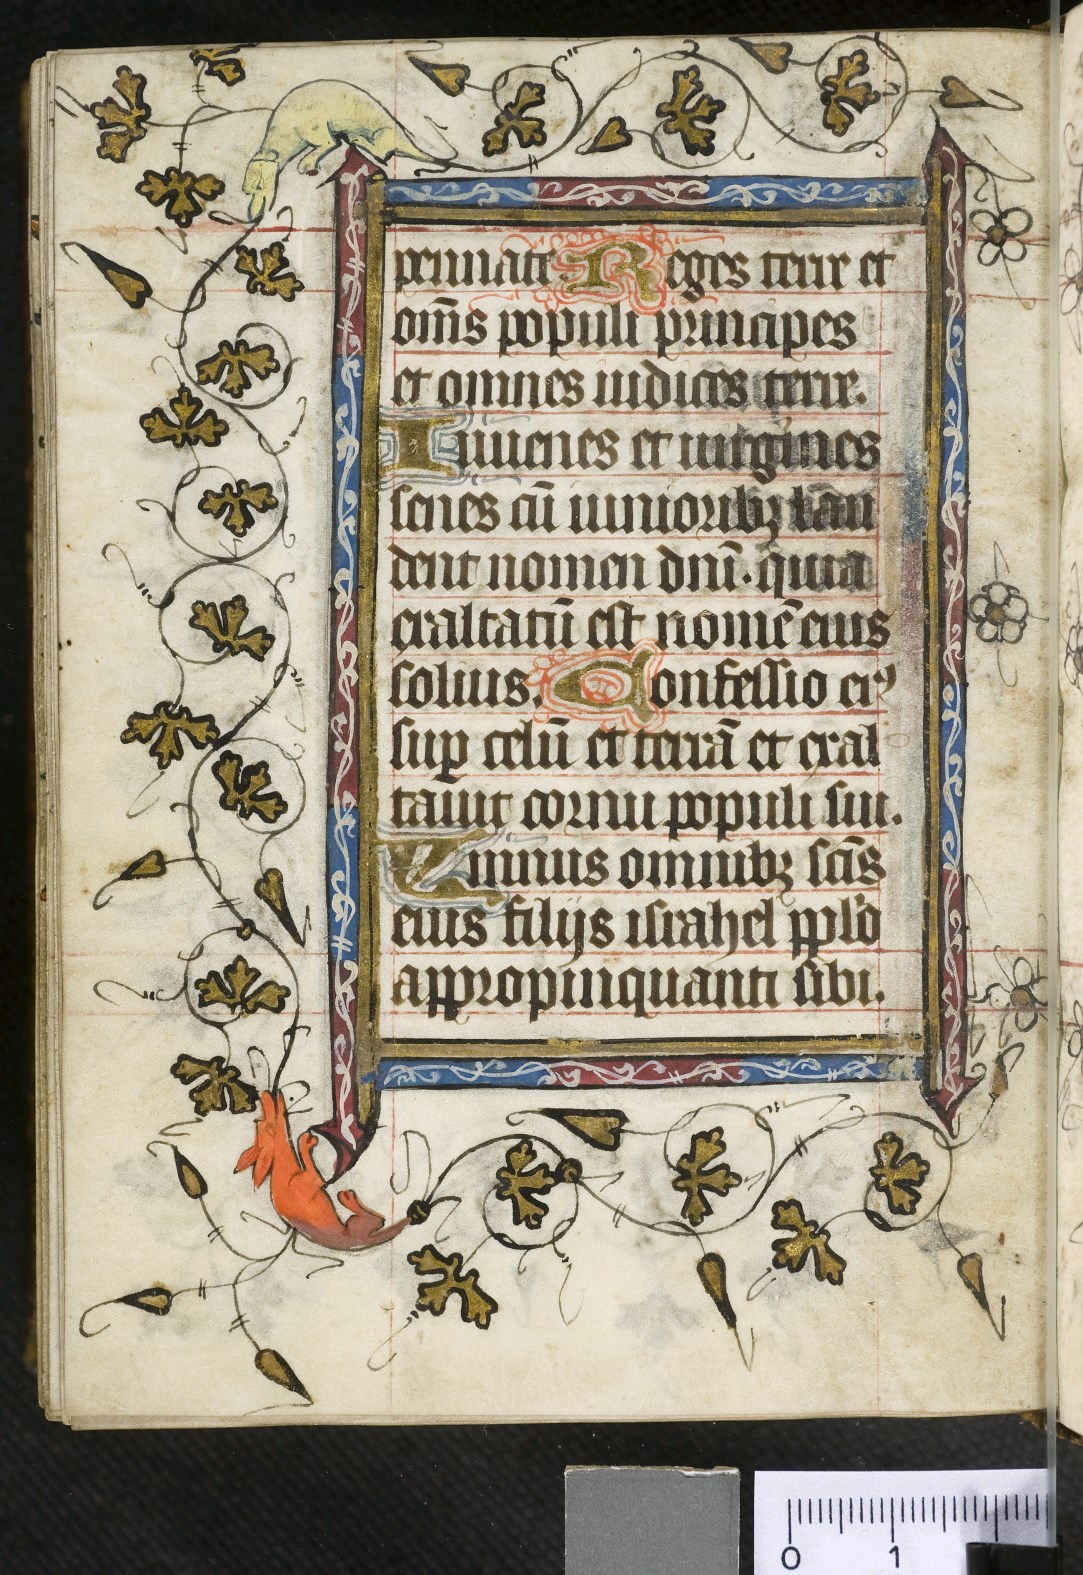 pennate. Reges terre et
om̄s populi principes
et omnes iudices terre.
Iuuenes et uirgines
senes cū iunioribꝫ lau
dent nomen dnī. quia
exaltatū est nomē eius
solius. Confessio eiꝰ
suꝑ celū et terrā et exal
tauit cornu populi sui.
Ẏmnus omnibꝫ scīs
eius filijs israhel ppl̄o
appropinquanti sibi.
0 1